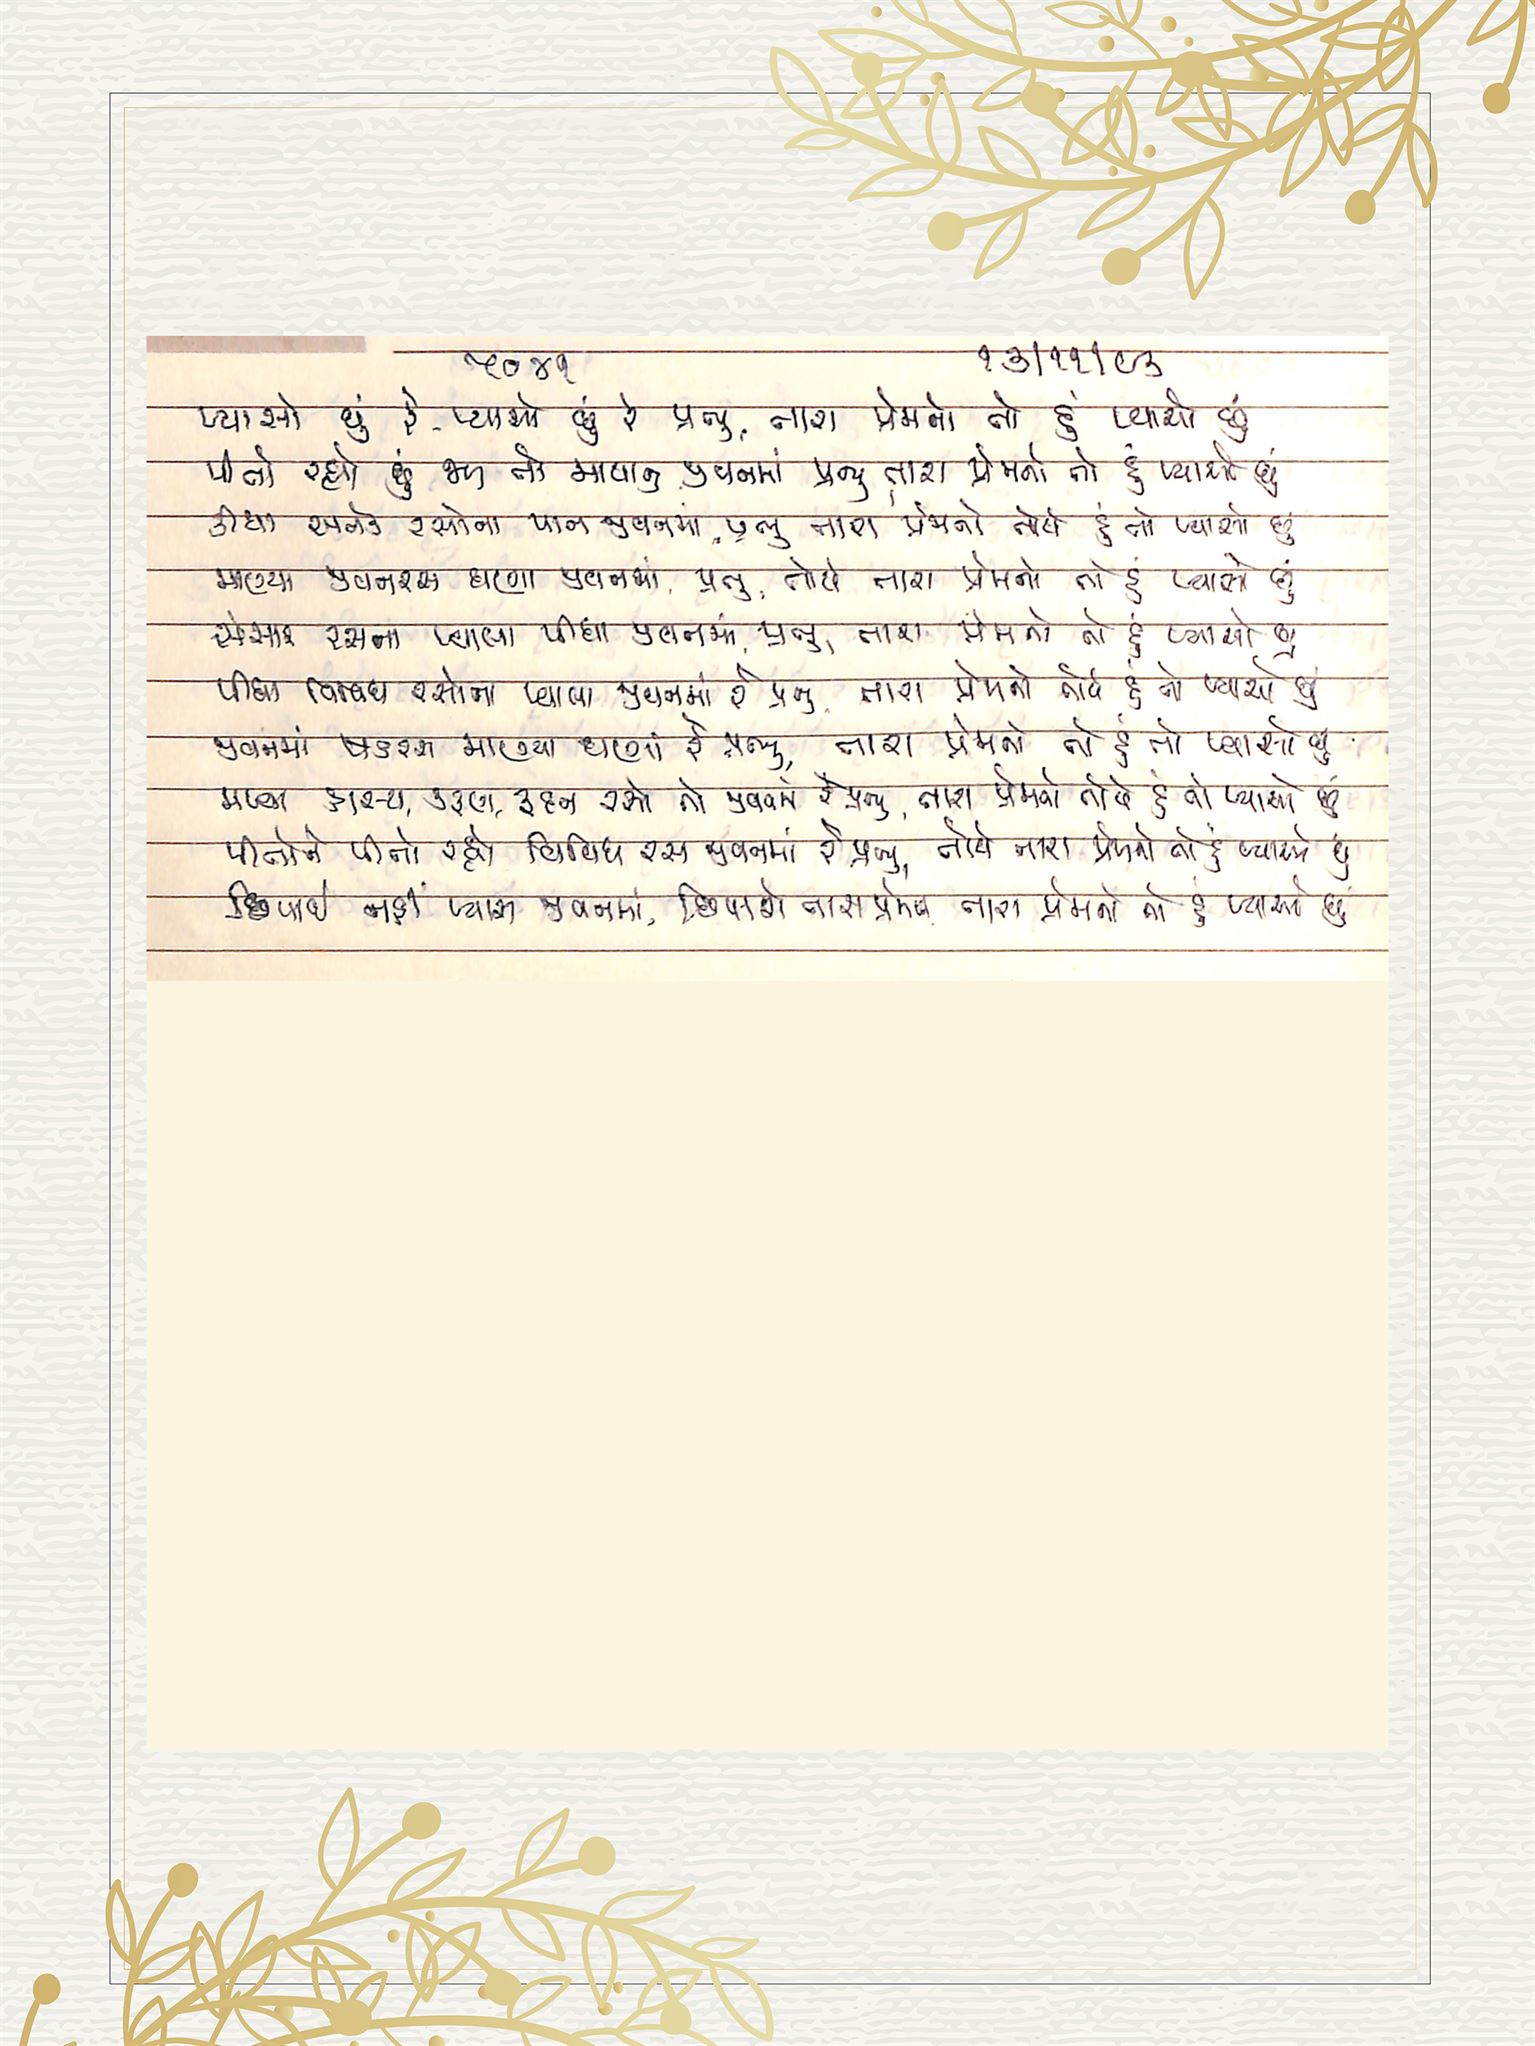 ૫૦૪૧ ૧૩/૧૧/૯૩
પ્યાસો છું રે પ્યાસો છું રે પ્રભુ, તારા પ્રેમનો તો હું પ્યાસો છું
પીતો રહ્યો છું જામ તો માયાનું જીવનમાં પ્રભુ તારા પ્રેમનો તો હું પ્યાસો છું
કીધા અનેક રસોના પાન જીવનમાં, પ્રભુ તારા પ્રેમનો તોયે હું તો પ્યાસો છું
માણ્યા જીવનરસ ઘણા જીવનમાં, પ્રભુ, તોયે તારા પ્રેમનો તો હું પ્યાસો છું
સંસાર રસના પ્યાલા પીધા જીવનમાં, પ્રભુ, તારા પ્રેમનો તો હું પ્યાસો છું
પીધા વિવિધ રસોના પ્યાલા જીવનમાં રે પ્રભુ, તારા પ્રેમનો તોયે હું તો પ્યાસો છું
જીવનમાં ષડરસ માણ્યા ઘણાં રે પ્રભુ, તારા પ્રેમનો તો હું તો પ્યાસો છું
હાસ્ય, કરુણ, રુદન રસો તો જીવનમાં રે પ્રભુ, તારા પ્રેમનો તોયે હું તો પ્યાસો છું
પીતોને પીતો રહ્યો વિવિધ રસ જીવનમાં રે પ્રભુ, તોયે તારા પ્રેમનો તો હું પ્યાસો છું
છિપાઈ નહીં પ્યાસ જીવનમાં, છિપાશે તારા તારા પ્રેમનો તો હું પ્યાસો છું